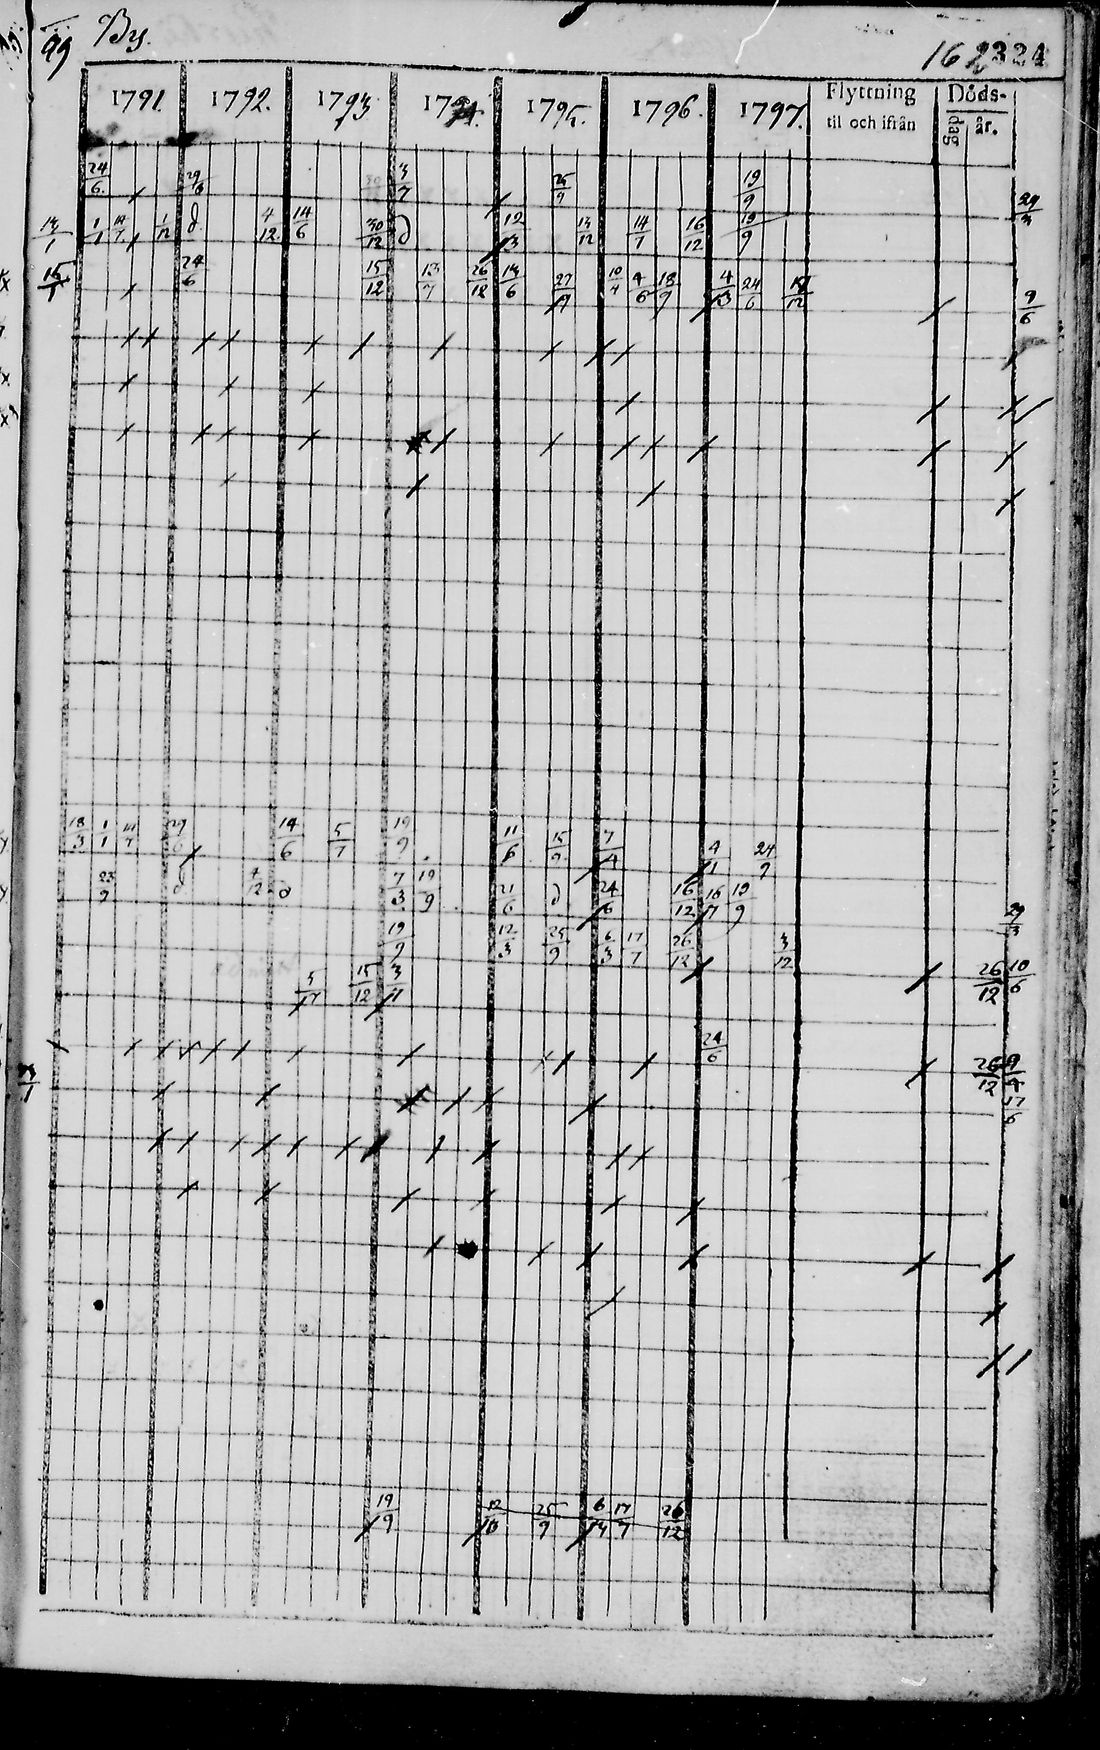 99 By. 162 324
1791. 1792. 1793. 1794. 1795. 1796. 1797. Flyttning til och ifrån Döds-
dag år.
24/6 29/6 3/7 25/9 19/9 29/3
13/1 1/1 14/7 1/12 d 4/12 14/6 30/12 d 12/3 13/12 14/7 16/12 19/9
15/1 24/6 15/12 13/7 26/12 14/6 27/9 10/4 4/6 18/9 4/3 24/6 12/12 9/6
18/3 1/1 14/7 29/6 14/6 5/7 19/9 11/6 15/9 7/4 4/1 24/9
23/9 d 4/12 d 7/3 19/9 21/6 d 24/6 16/12 16/7 19/9 29/3
19/9 12/3 25/9 6/3 17/7 26/12 3/12
5/7 15/12 3/11 26/12 10/6
24/6 26/12 9/4
17/6
19/9 12/3 25/9 6/4 17/7 26/12